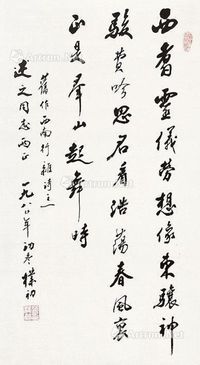 西眢灵仪劳想像东骧神
骏费吟思君看浩荡春风里
正是群山起舞时
旧作西南行杂诗之一
迷之同志两正
一九八〇年初冬 朴初